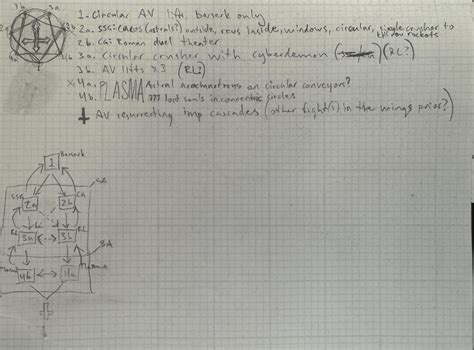 1. Circular AV lift, berserk only
2a. SSG: Cacos (astrals?) outside, revs inside, windows, circular, single crusher to
tell dev rockets
2b. CG: Roman duel theater
3a. Circular crusher with cyberdemon (RL?)
3b. AV lifts x3 (RL?)
4a. PLASMA Astral arachnotrons on circular conveyors?
4b. 777 lost souls in concentric circles
AV resurrecting imp cascades (other fight(s) in the wings prior?)
Berserk
1
GA
SSG 2a 2b CG
RL 3a 3b RL
BA
4b 4a Plasma